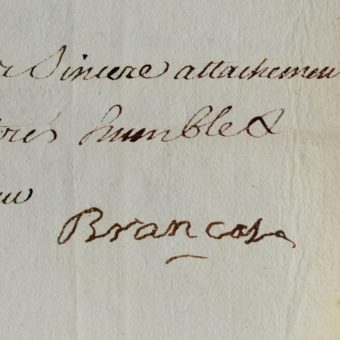 sincere attachemen
trés humble &
Brancas